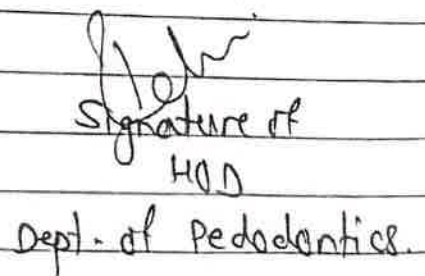 Signature of
HOD
Dept. of Pedodontics.